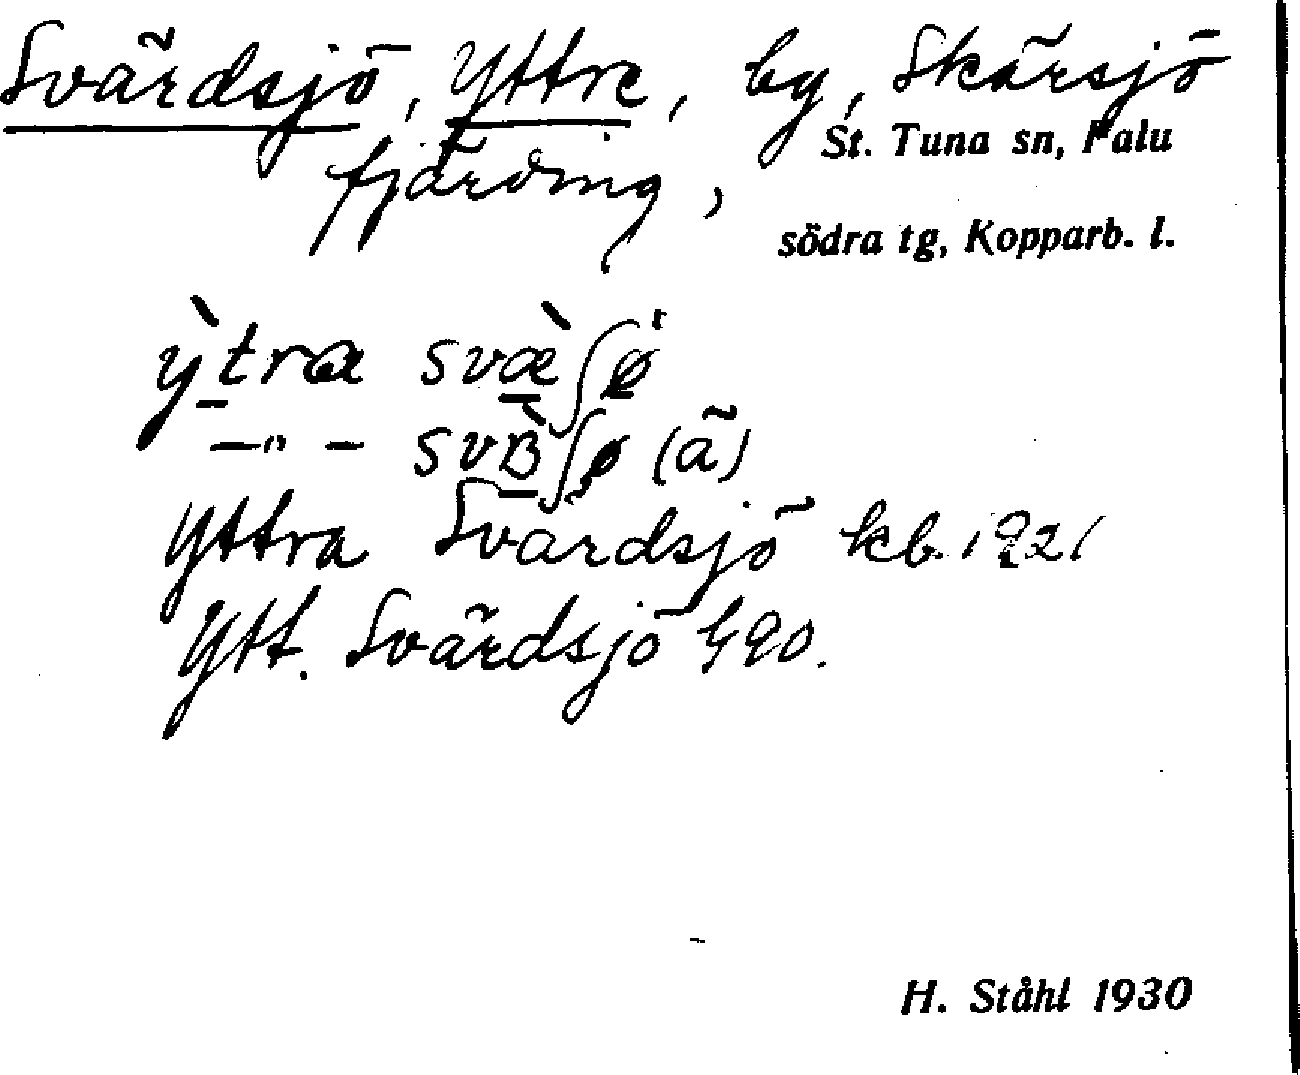 Svärdsjö, Yttre, by, Skärsjö
St. Tuna sn, Falu
fjärding,
södra tg, Kopparb. l.
ỳtra svæ̀ʃø
—"— svB̀ʃø (ä)
Yttra Svärdsjö kb. 1921
Ytt. Svärdsjö G90.
H. Ståhl 1930